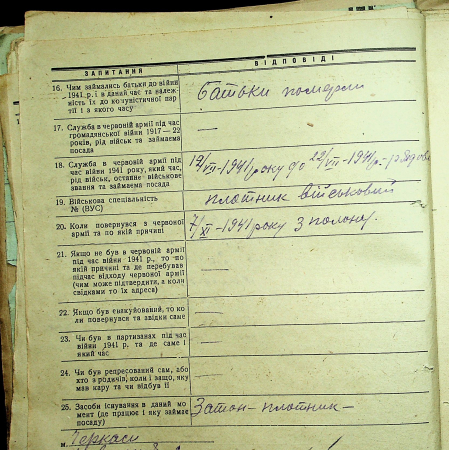 ЗАПИТАННЯ
ВІДПОВІДІ
16. Чим займались батьки до війни
1941 р. і в даний час та належ-
ність їх до комуністичної пар-
тії і з якого часу
батьки померли
17. Служба в червоній армії під час
громадянської війни 1917—22
років, рід військ та займаєма
посада
—
18. Служба в червоній армії під
час війни 1941 року, який час,
рід військ, останнє військове
звання та займаєма посада
19/VII-1941 року до 22/VII-1941 р.
19. Військова спеціальність
№ (ВУС)
плотник військовий
20. Коли повернувся з червоної
армії та по якій причині
7/XI-1941 року з полону
21. Якщо не був в червоній армії
під час війни 1941 р., то по
якій причині та де перебував
підчас відходу червоної армії
(чим може підтвердити, а коли
свідками то їх адреса)
—
22. Якщо був евакуйований, то ко-
ли повернувся та звідки саме
—
23. Чи був в партизанах під час
війни 1941 р, та де саме і
який час
—
24. Чи був репресований сам, або
хто з родичів, коли і защо, яку
мав кару та чи відбув її
—
25. Засоби існування в даний мо-
мент (де працює і яку займає
посаду)
Затон - плотник -
м. Черкаси